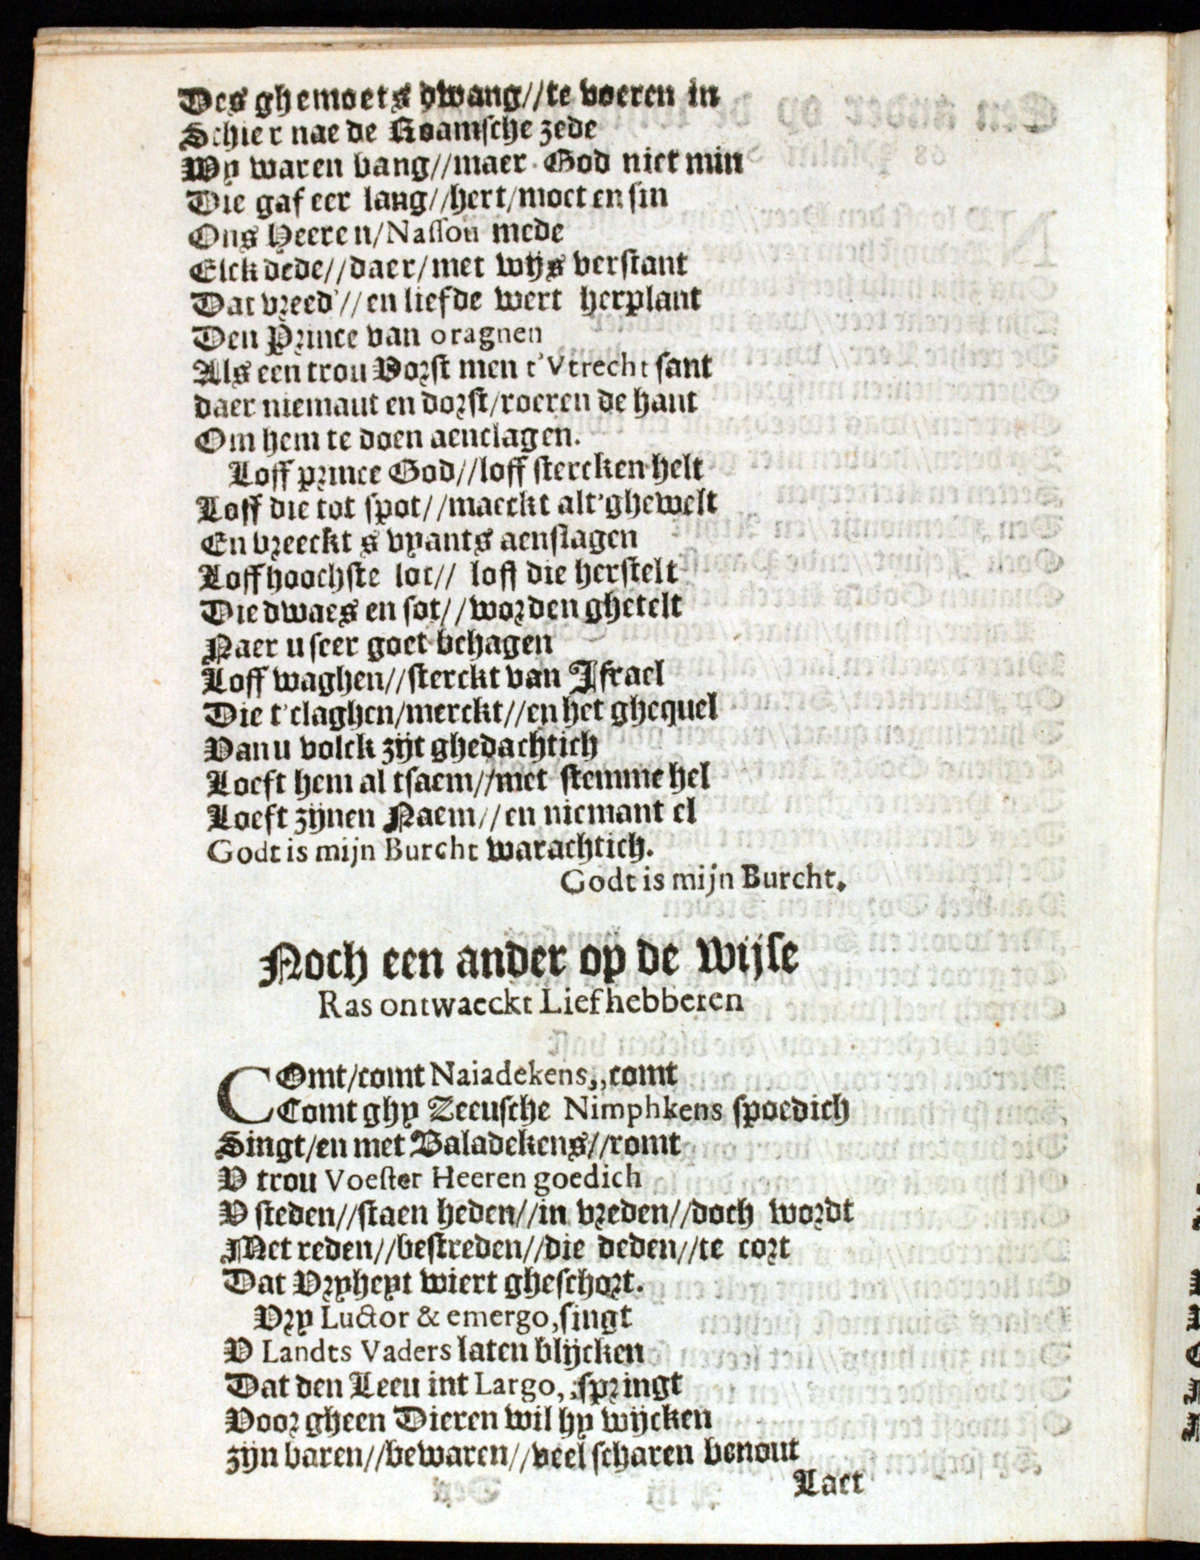 Des ghemoets dwang//te voeren in
Schier nae de Roamsche zede
Wy waren bang//maer God niet min
Die gaf eer lang//hert/moet en sin
Ons Heeren/Nassou mede
Elck dede//daer/met wijs verstant
Dat vreed'//en liefde wert herplant
Den Prince van oragnen
Als een trou Vorst men t'Vtrecht sant
daer niemant en dorst/roeren de hant
Om hem te doen aenclagen.
Loff prince God//loff stercken helt
Loff die tot spot//maeckt alt'ghewelt
En vreeckt s vyants aenslagen
Loff hoochste lot// loff die herstelt
Die dwaes en sot//worden ghetelt
Naer u seer goet behagen
Loff waghen//sterckt van Israel
Die t'claghen/merckt//en het ghequel
Van u volck zijt ghedachtich
Loeft hem al tsaem//met stemme hel
Loeft zijnen Naem//en niemant el
Godt is mijn Burcht warachtich.
Godt is mijn Burcht.
Noch een ander op de wijse
Ras ontwaeckt Liefhebberen
COmt/comt Naiadekens,,comt
Comt ghy Zeeusche Nimphkens spoedich
Singt/en met Baladekens//romt
V trou Voester Heeren goedich
V steden//staen heden//in vreden//doch wordt
Met reden//bestreden//die deden//te cort
Dat Vryheyt wiert gheschort.
Vry Luctor & emergo,singt
V Landts Vaders laten blijcken
Dat den Leeu int Largo, springt
Voor gheen Dieren wil hy wijcken
zijn baren//bewaren//veel scharen benout
Laet